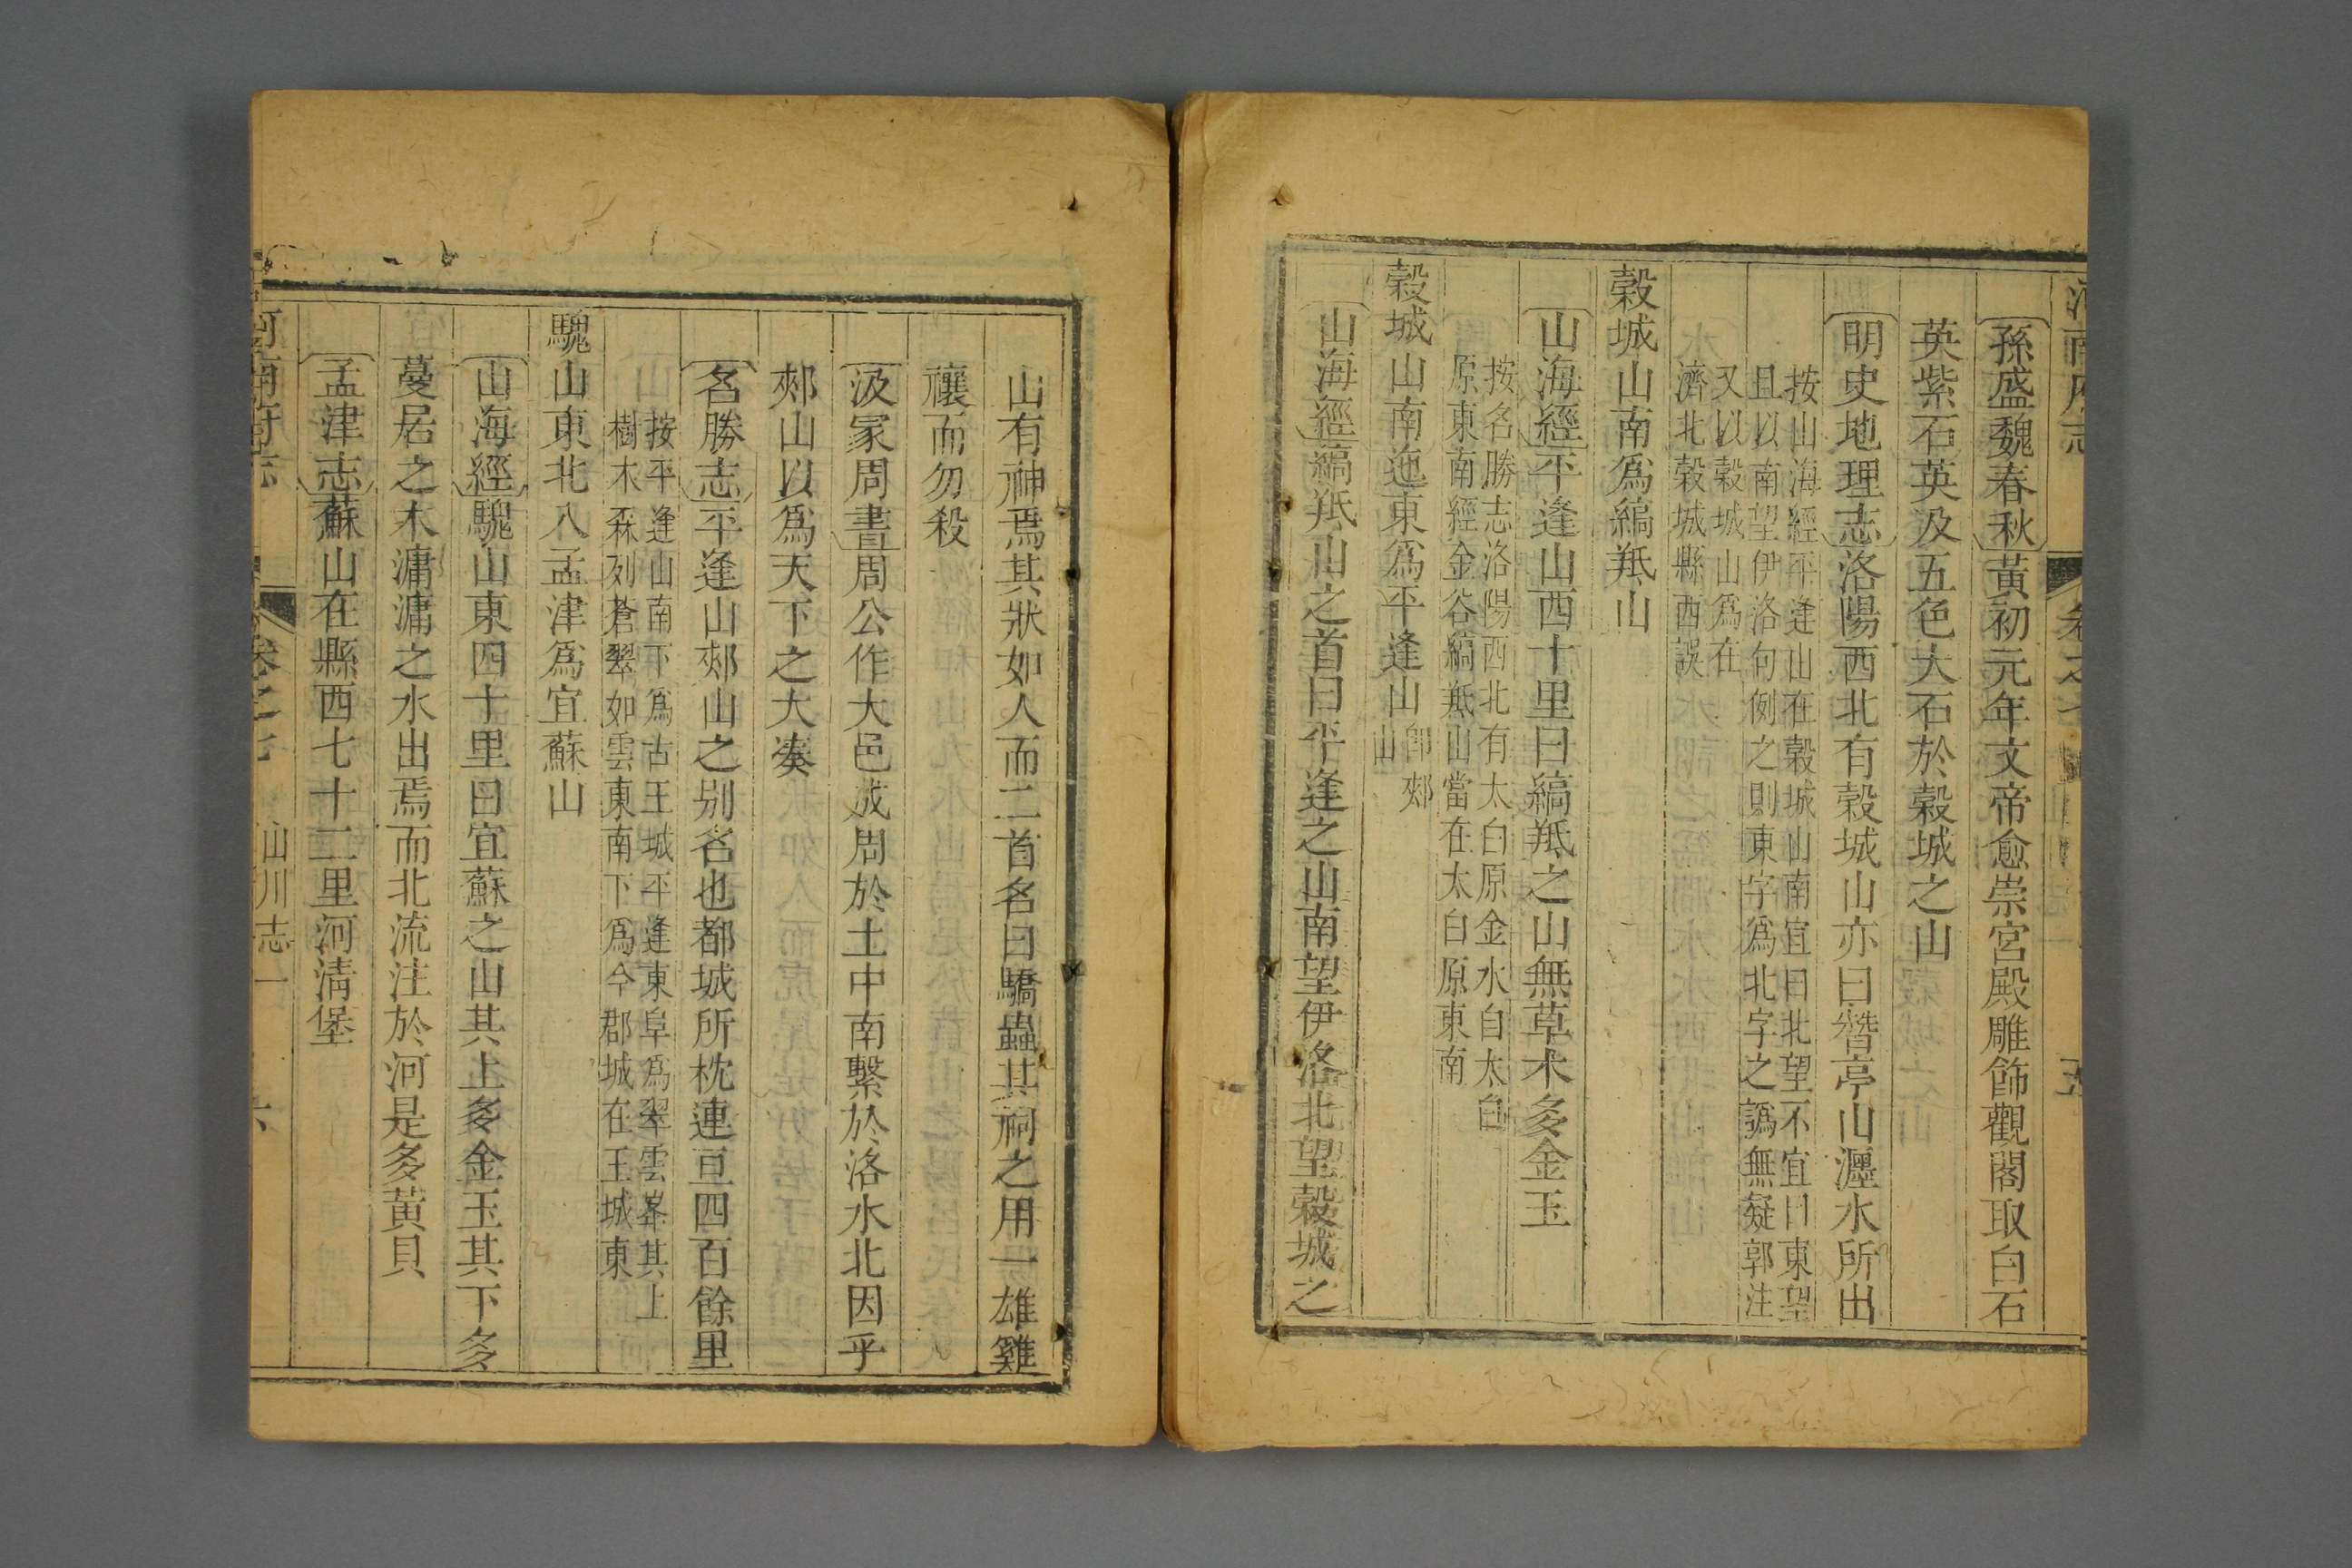 河南府志 卷之七 五
孫盛魏春秋黃初元年文帝愈崇宮殿雕飾觀閣取白石
英紫石英及五色大石於穀城之山
明史地理志洛陽西北有穀城山亦曰朁亭山瀍水所出
按山海經平逢山在穀城山南宜曰北望不宜曰東望
且以南望伊洛句例之則東字爲北字之譌無疑郭注
又以穀城山爲在
濟北穀城縣西誤
穀城山南爲縞羝山
山海經平逢山西十里曰縞羝之山無草木多金玉
按名勝志洛陽西北有太白原金水自太白
原東南經金谷縞羝山當在太白原東南
穀城山南迤東爲平逢山卽郟
山
山海經縞羝山之首曰平逢之山南望伊洛北望穀城之
山有神焉其狀如人而二首名曰驕蟲其祠之用一雄雞
禳而勿殺
汲冢周書周公作大邑成周於土中南繫於洛水北因乎
郟山以爲天下之大湊
名勝志平逢山郟山之别名也都城所枕連亘四百餘里
按平逢山南下爲古王城平逢東阜爲翠雲峯其上
樹木森列蒼翠如雲東南下爲今郡城在王城東
騩山東北入孟津爲宜蘇山
山海經騩山東四十里曰宜蘇之山其上多金玉其下多
蔓居之木滽滽之水出焉而北流注於河是多黃貝
孟津志蘇山在縣西七十二里河淸堡
河南府志 卷之七 山川志一 六